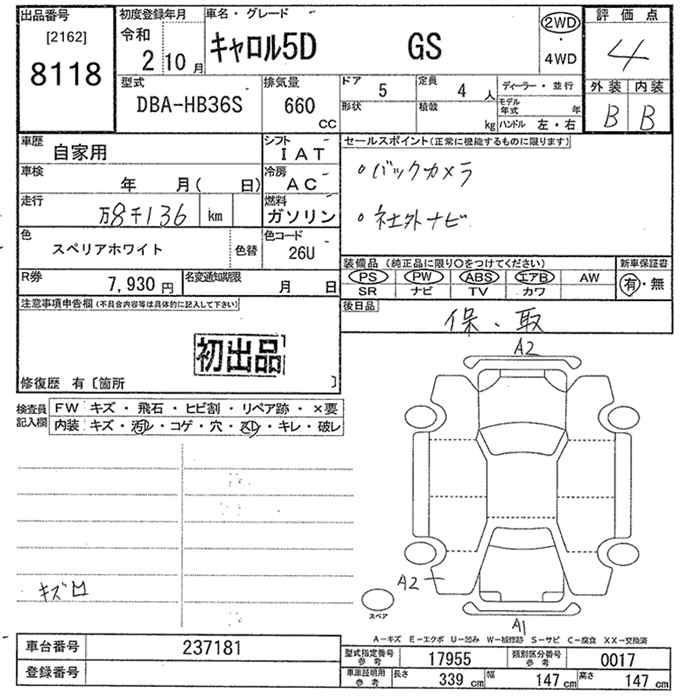 出品番号
[2162]
8118
初度登録年月
令和
2 10 月
車名・グレード
キャロル5D GS
2WD
・
4WD
評価点
4
外装 内装
B B
型式
DBA-HB36S
排気量
660
CC
ドア 5
定員 4 人
形状
積載 kg
ディーラー・並行
モデル年式 年
ハンドル 左・右
車歴
自家用
シフト
IAT
車検
年 月( 日)
冷房
AC
走行
万8千136 km
燃料
ガソリン
色
スペリアホワイト
色替
色コード
26U
R券
7,930 円
名変通知期限
月 日
セールスポイント(正常に機能するものに限ります)
。バックカメラ
。社外ナビ
装備品 (純正品に限り○をつけてください)
新車保証書
PS PW ABS エアB AW
SR ナビ TV カワ
有・無
後日品
保、取
注意事項申告欄(不具合内容等は具体的に記入して下さい)
初出品
修復歴 有〔箇所 〕
検査員
記入欄
FW キズ・飛石・ヒビ割・リペア跡・×要
内装 キズ・汚れ・コゲ・穴・スレ・キレ・破レ
A2
キズ
A2
スペア
A1
A−キズ E−エクボ U−凹み W−補修跡 S−サビ C−腐食 XX−交換済
車台番号 237181
登録番号
型式指定番号
参考
17955
類別区分番号
参考
0017
車庫証明用
参考
長さ 339 cm
幅 147 cm
高さ 147 cm